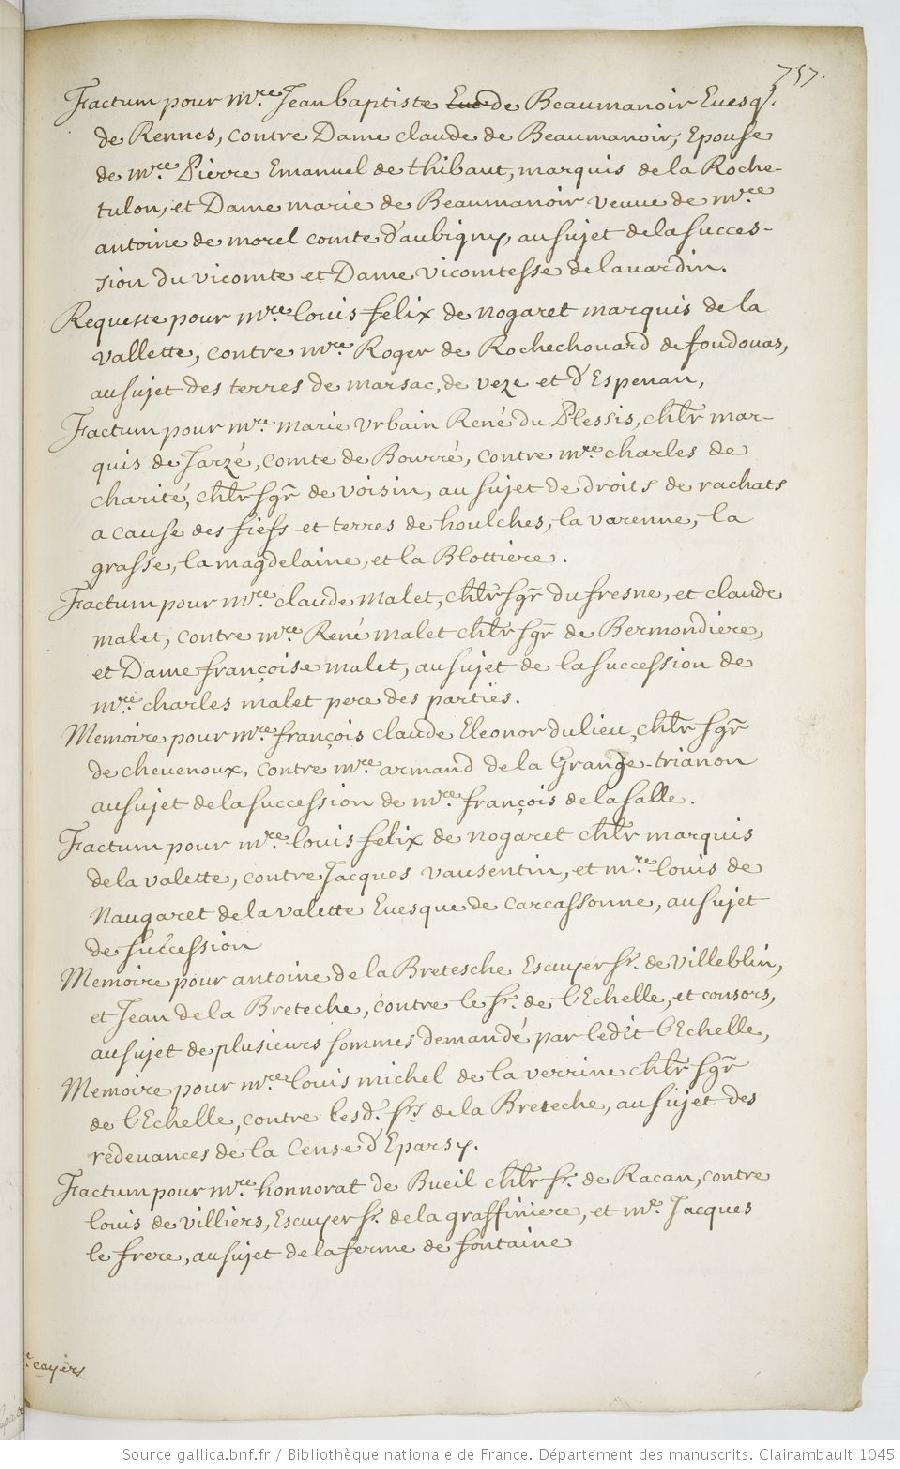 757.
Factum pour mre. Jean baptiste Eue de Beaumanoir Euesq.
de Rennes, contre Dame claude de Beaumanoir, Epouse
de mre. Pierre Emanuel de thibaut, marquis de la Roche-
tulon, et Dame marie de Beaumanoir veuue de mre
antoine de morel comte d'aubigny, au sujet de la succes-
sion du vicomte et Dame vicomtesse de lauardin.
Requeste pour mre. louis felix de nogaret marquis de la
vallette, contre mre. Roger de Rochechouard de foudouas,
au sujet des terres de marsac, de veze et d'Espenan,
Factum pour mr. marie Vrbain René du Plessis, chlr mar-
quis de Jarzé, comte de Bourré, contre mre. charles de
charité, chlr sgr de voisin, au sujet de droits de rachats
a cause des fiefs et terres de houlches, la varenne, la
grasse, la magdelaine, et la Blottiere.
Factum pour mre. claude malet, chlr sgr du fresne, et claude
malet, contre mre. René malet chlr sgr de Bermondiere,
et Dame françoise malet, au sujet de la succession de
mre. charles malet pere des partiës.
Memoire pour mre. françois claude Eleonor dulieu, chlr sgr
de cheuenoux, contre mre. armand de la Grange-trianon
au sujet de la succession de mre. françois de la salle.
Factum pour mre. louis felix de nogaret chlr marquis
de la valette, contre Jacques vausentin, et mre. louis de
Naugaret de la valette Euesque de carcassonne, au sujet
de succession
Memoire pour antoine de la Bretesche Escuyer sr. de villeblin,
et Jean de la Breteche, contre le sr. de l'Echelle, et consors,
au sujet de plusieurs sommes demandé par ledit l'Echelle,
Memoire pour mre. louis michel de la verrine chlr sgr
de l'Echelle, contre lesd. srs de la Breteche, au sujet des
redeuances de la Cense d'Eparsy.
Factum pour mre. honnorat de Bueil chlr sr. de Racan, contre
louis de villiers, Escuyer sr. de la graffiniere, et me. Jacques
le frere, au sujet de la ferme de fontaine
cayers
Source gallica.bnf.fr / Bibliothèque nationale de France. Département des manuscrits. Clairambault 1045